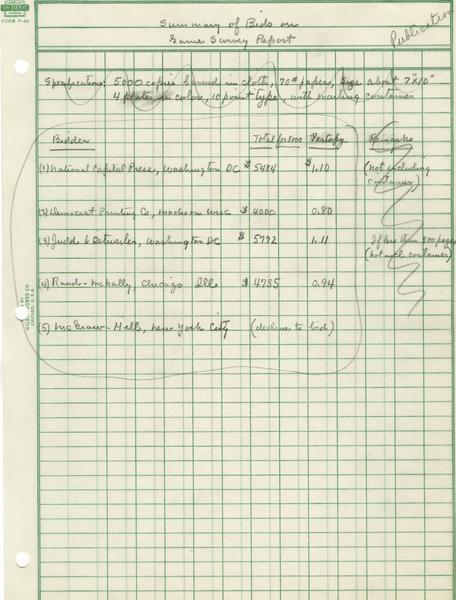 FORM P-40
Summary of Bids on
Game Survey Report
Publication
Specifications: 5000 copies bound in cloth, 70# papers, size about 7"x10"
4 plates in colors, 10 point type, with mailing container
Bidder Total for 5000 Per copy Remarks
(1) National Capital Press, Washington DC $ 5484 $1.10 (not including
container)
(2) Democrat Printing Co, Madison Wisc $ 4000 0.80
(3) Judd & Detweiler, Washington DC $ 5772 1.11 If less than 300 pages
(not incl container)
(4) Rand-McNally Chicago Ill $ 4735 0.94
(5) McGraw-Hill, New York City (decline to bid)